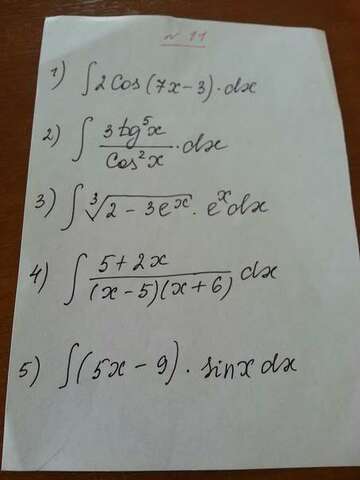 № 11
1) ∫2Cos(7x-3)·dx
2) ∫ 3tg⁵x / Cos²x ·dx
3) ∫ ∛(2-3eˣ)·eˣdx
4) ∫ 5+2x / (x-5)(x+6) dx
5) ∫(5x-9)·sinx dx